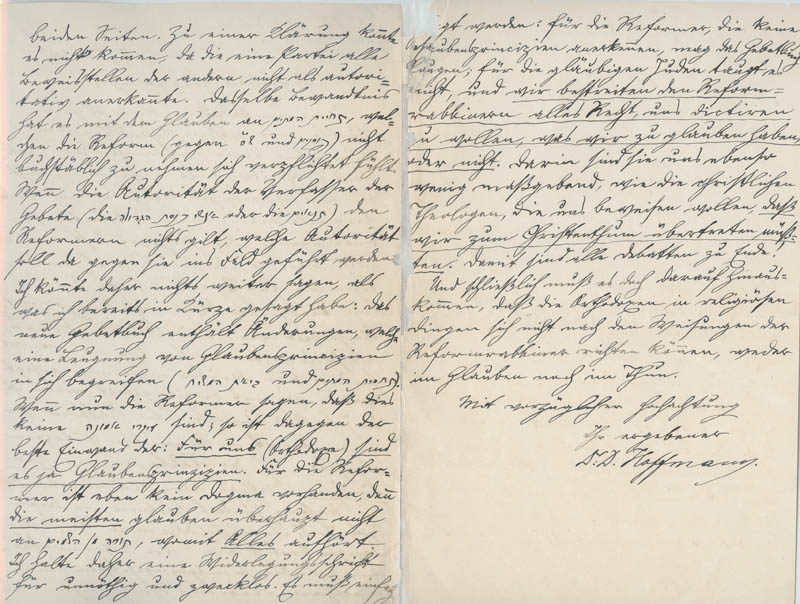 beiden Seiten. Zu einer Klärung konnte
es nicht kommen, da die eine Partei alle
Beweisstellen der andern nicht als autori-
tativ anerkannte. Dasselbe Bewandtnis
hat es mit dem Glauben an תחית המתים, wel-
chen die Reform (gegen ש״ס und פוסקים) nicht
buchstäblich zu nehmen sich verpflichtet fühlt.
Wenn die Autorität der Verfasser der
Gebete (die אנשי כנסת הגדולה oder die תנאים) den
Reformern nichts gilt, welche Autorität
soll da gegen sie ins Feld geführt werden.
Ich könnte daher nichts weiter sagen, als
was ich bereits in Kürze gesagt habe: Das
neue Gebetbuch enthält Änderungen, welche
eine Leugnung von Glaubensprinzipien
in sich begreifen (תחית המתים und ביאת המשיח).
Wenn nun die Reformer sagen, daß dies
keine עיקרי אמונה sind; so ist dagegen der
beste Einwand der: Für uns (Orthodoxe) sind
es ja Glaubensprinzipien. Für die Refor-
mer ist eben kein Dogma vorhanden, denn
die meisten glauben überhaupt nicht
an תורה מן השמים, womit Alles aufhört
Ich halte daher eine Widerlegungsschrift
für unnöthig und zwecklos. Es muß einfach
igt werden: für die Reformer, die keine
Glaubensprincipien anerkennen, mag das Gebetbuch
taugen; für die gläubigen Juden taugt es
nicht, und wir bestreiten den Reform-
rabbinern alles Recht, uns dictiren
zu wollen, was wir zu glauben haben,
oder nicht. Darin sind sie uns ebenso
wenig maßgebend, wie die christlichen
Theologen, die uns beweisen wollen, daß
wir zum Christenthum übertreten müß-
ten. Damit sind alle Debatten zu Ende.
Und schließlich muß es doch darauf hinaus-
kommen, daß die Orthodoxen in religiösen
Dingen sich nicht nach den Weisungen der
Reformrabbiner richten können, weder
im Glauben noch im Thun.
Mit vorzüglicher Hochachtung
Ihr ergebener
Dr. D. Hoffmann.